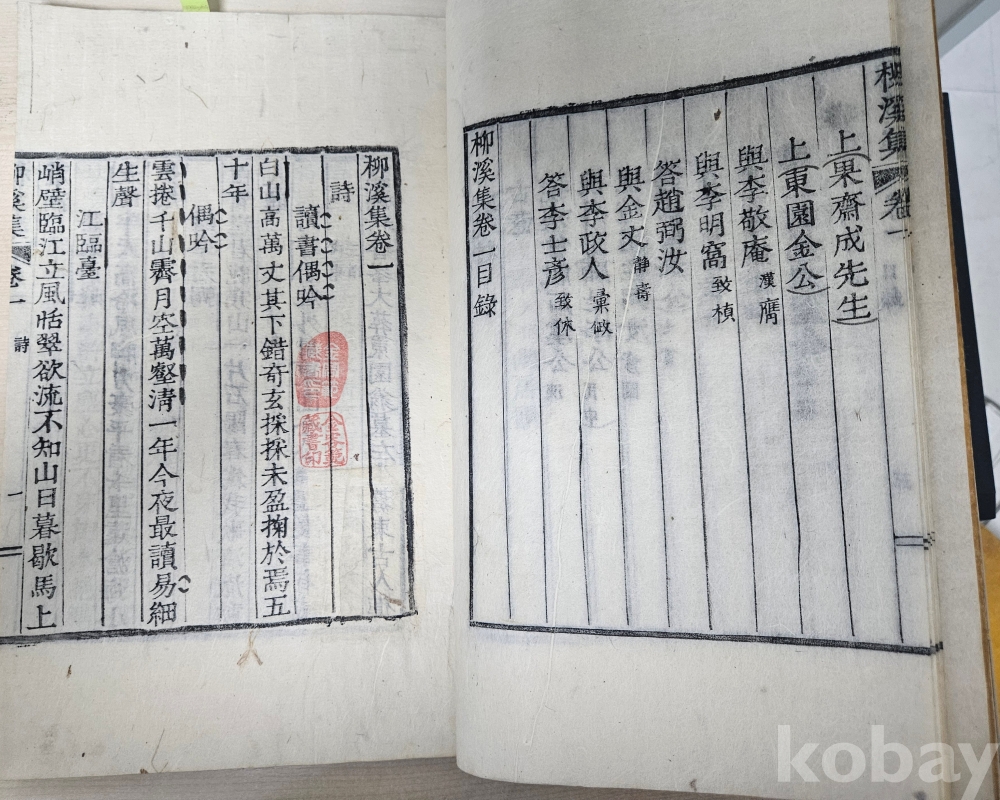 柳溪集 卷一
上果齋成先生
上東園金公
與李敬庵 漢膺
與李明窩 致楨
答趙弼汝
與金丈 靜壽
與李政人 彙政
答李士彦 致休
柳溪集卷一目錄
柳溪集卷一
詩
讀書偶吟
白山高萬丈其下錯奇玄採採未盈掬於焉五
十年
偶吟
雲捲千山霽月空萬壑淸一年今夜最讀易細
生聲
江臨臺
峭壁臨江立風恬翠欲流不知山日暮歇馬上
柳溪集 卷一 詩 一
藏書印
kobay